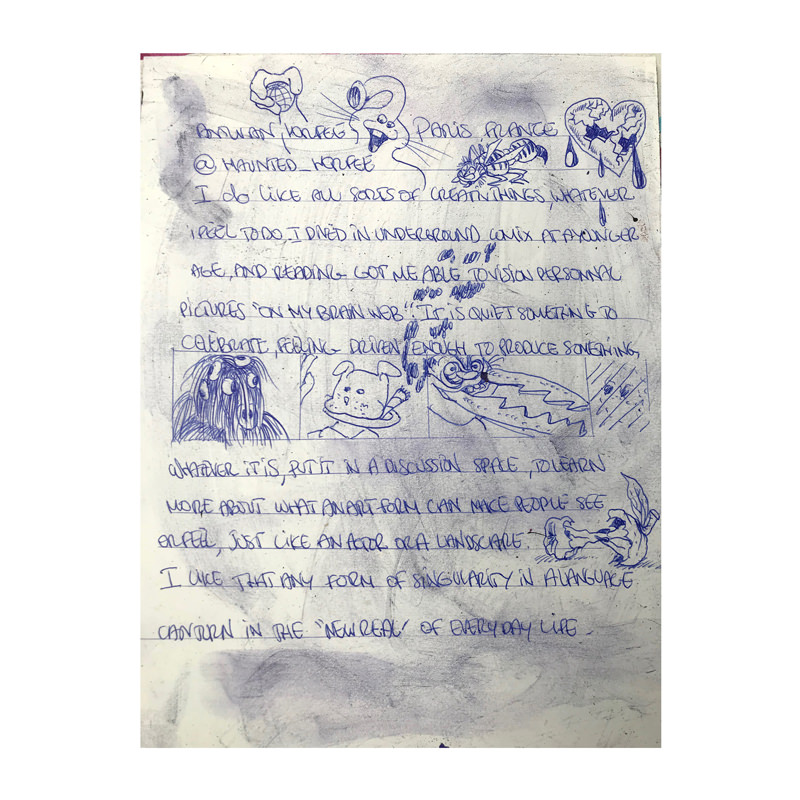 ANTWAN HORFEE, PARIS, FRANCE
@ HAUNTED_HORFEE
I do LIKE ALL SORTS OF CREATIV THINGS, WHATEVER
i FEEL TO DO. I DIVED IN UNDERGROUND COMIX AT A YOUNGER
AGE, AND READING GOT ME ABLE TO VISION PERSONNAL
PICTURES "ON MY BRAIN WEB". IT IS QUIET SOMETHING TO
CELEBRATE, FEELING DRIVEN ENOUGH TO PRODUCE SOMETHING,
WHATEVER IT IS, PUT IT IN A DISCUSSION SPACE, TO LEARN
MORE ABOUT WHAT AN ART FORM CAN MAKE PEOPLE SEE
OR FEEL, JUST LIKE AN ACTOR OR A LANDSCAPE.
I LIKE THAT ANY FORM OF SINGULARITY IN A LANGUAGE
CAN TURN IN THE "NEW REAL" OF EVERYDAY LIFE.